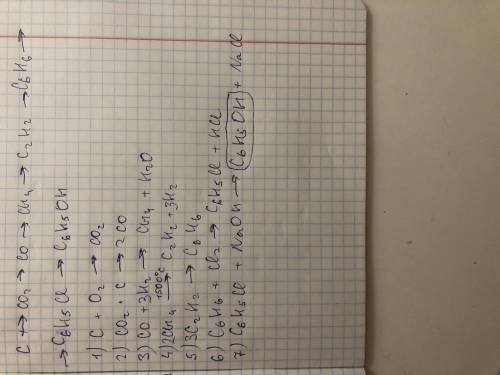 C → CO₂ → CO → CH₄ → C₂H₂ → C₆H₆ →
→ C₆H₅Cl → C₆H₅OH
1) C + O₂ → CO₂
2) CO₂ + C → 2CO
3) CO + 3H₂ → CH₄ + H₂O
4) 2CH₄ 1500°C → C₂H₂ + 3H₂
5) 3C₂H₂ → C₆H₆
6) C₆H₆ + Cl₂ → C₆H₅Cl + HCl
7) C₆H₅Cl + NaOH → C₆H₅OH + NaCl